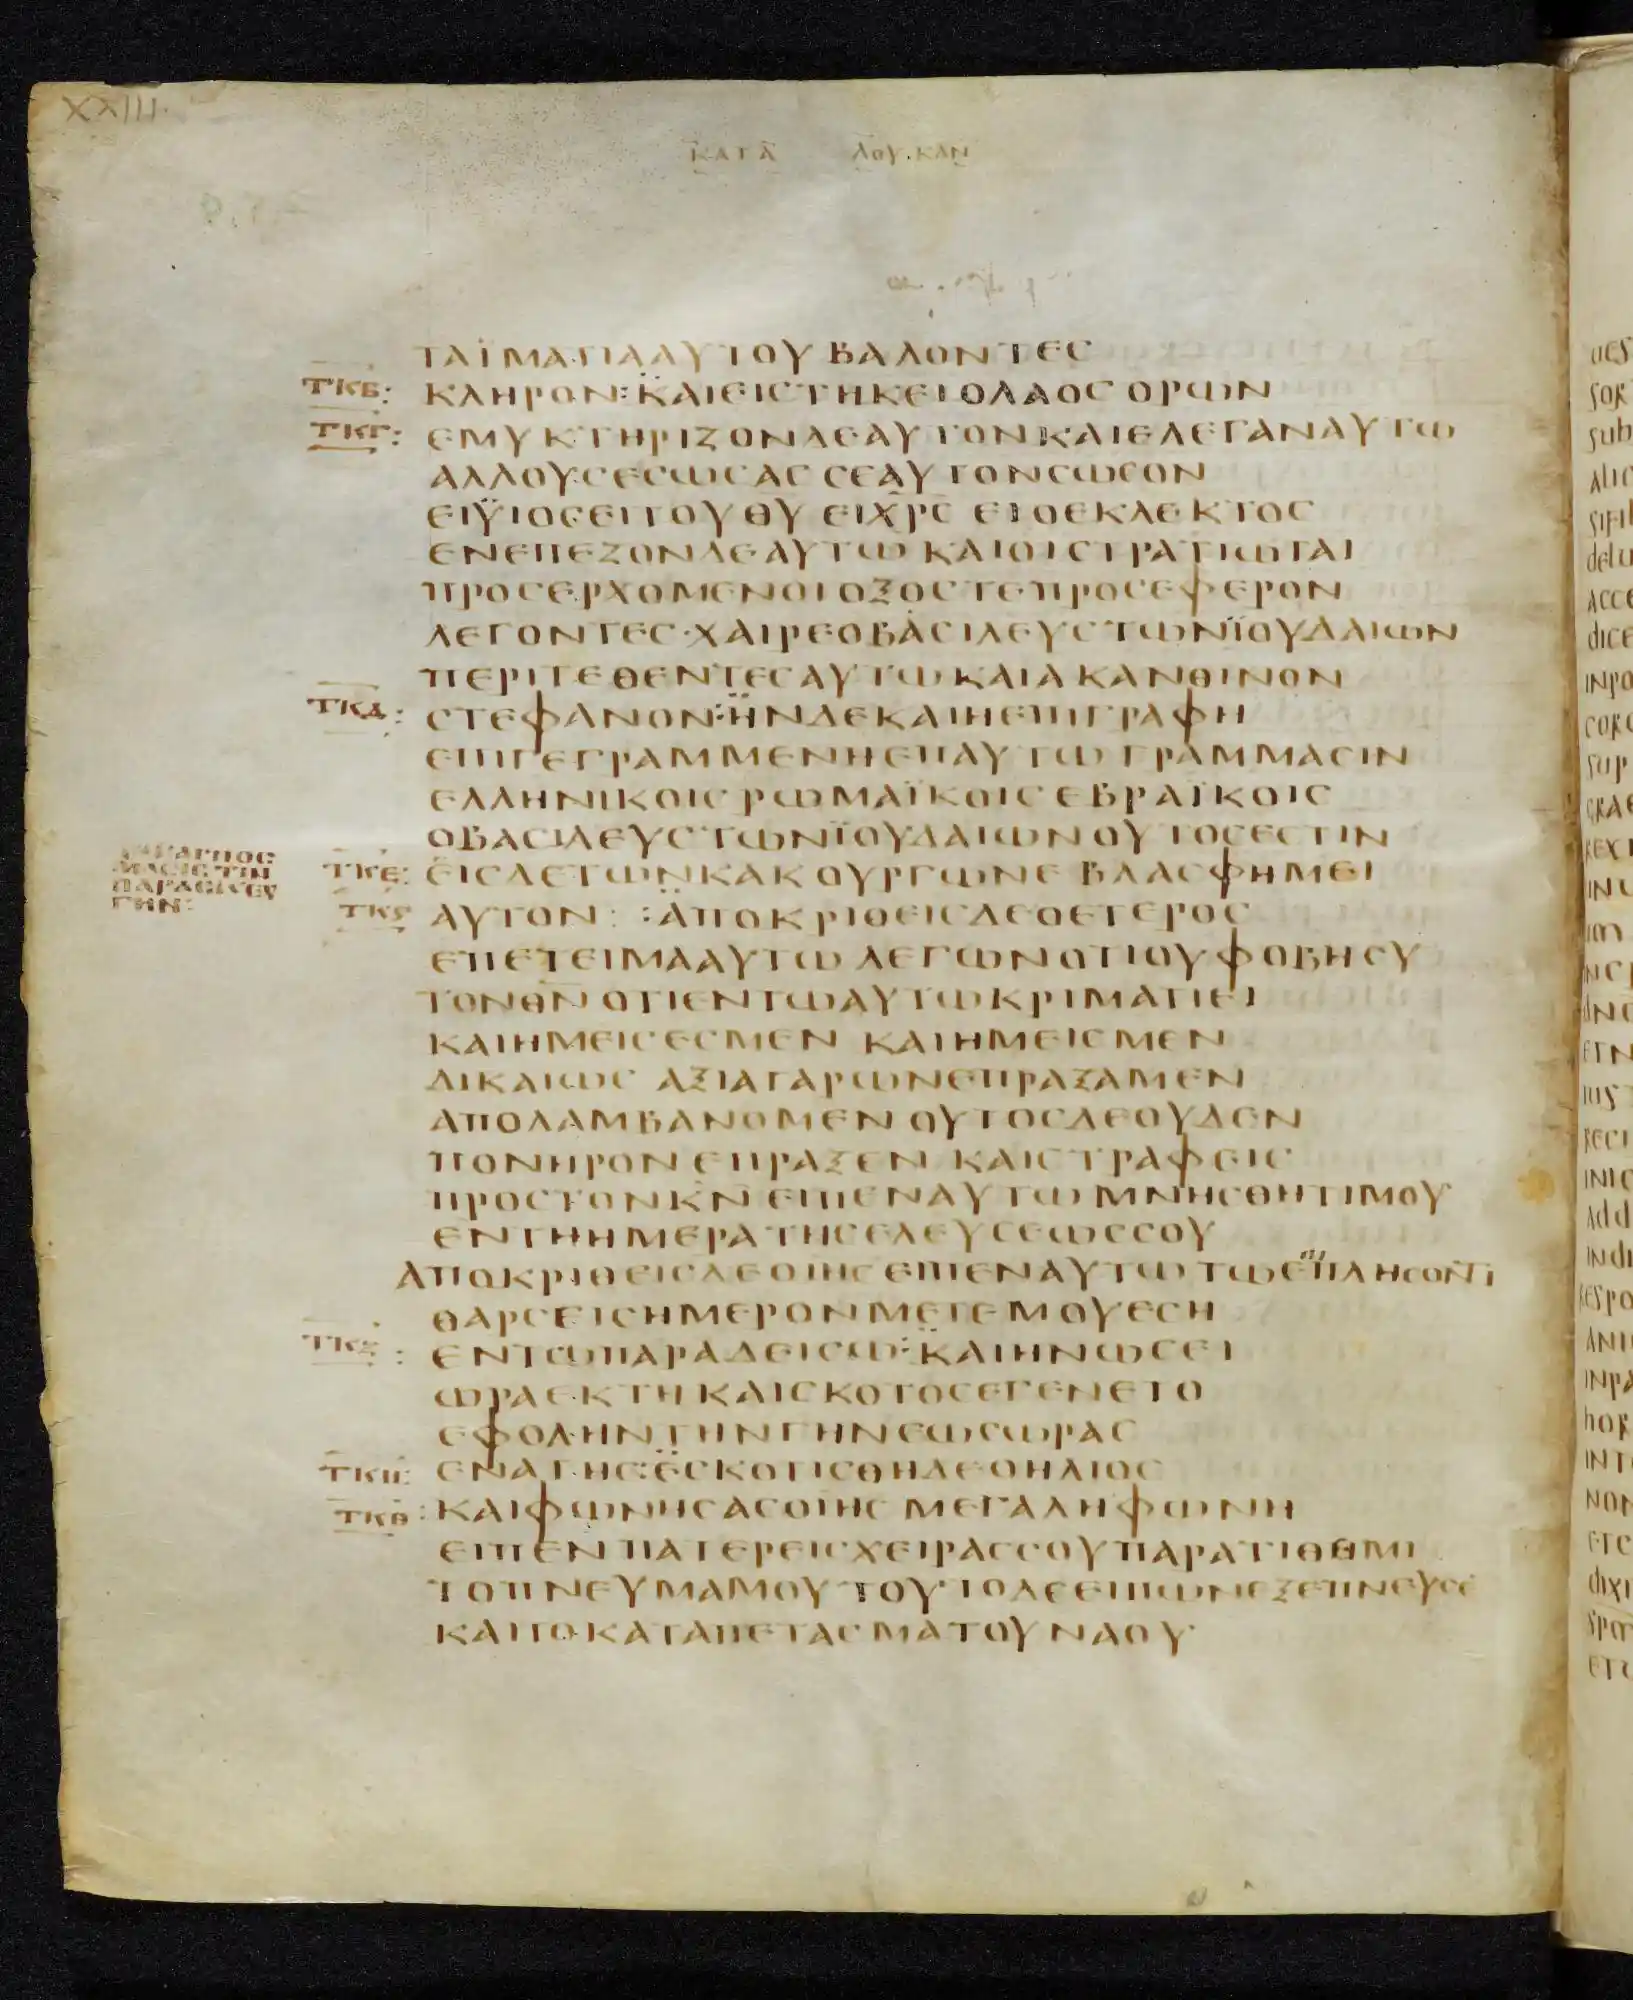 XXIII.
ΚΑΤΑ ΛΟΥΚΑΝ
ΤΑΪΜΑΤΙΑΑΥΤΟΥ ΒΑΛΟΝΤΕΣ
ΤΚΒ: ΚΛΗΡΟΝ: ΚΑΙΕΙΣΤΗΚΕΙΟΛΑΟΣ ΟΡΩΝ
ΤΚΓ: ΕΜΥΚΤΗΡΙΖΟΝΔΕΑΥΤΟΝΚΑΙΕΛΕΓΑΝΑΥΤΩ
ΑΛΛΟΥΣΕΣΩΣΑΣ ΣΕΑΥΤΟΝΣΩΣΟΝ
ΕΙΫΙΟΣΕΙΤΟΥ ΘΥ ΕΙΧΡΣ ΕΙΟΕΚΛΕΚΤΟΣ
ΕΝΕΠΕΖΟΝΔΕΑΥΤΩ ΚΑΙΟΙΣΤΡΑΤΙΩΤΑΙ
ΠΡΟΣΕΡΧΟΜΕΝΟΙ ΟΞΟΣΤΕΠΡΟΣΕΦΕΡΟΝ
ΛΕΓΟΝΤΕΣ·ΧΑΙΡΕΟΒΑΣΙΛΕΥΣΤΩΝΪΟΥΔΑΙΩΝ
ΠΕΡΙΤΕΘΕΝΤΕΣΑΥΤΩ ΚΑΙΑΚΑΝΘΙΝΟΝ
ΤΚΔ: ΣΤΕΦΑΝΟΝ: ΗΝΔΕΚΑΙΗΕΠΙΓΡΑΦΗ
ΕΠΙΓΕΓΡΑΜΜΕΝΗΕΠΑΥΤΩ ΓΡΑΜΜΑΣΙΝ
ΕΛΛΗΝΙΚΟΙΣ ΡΩΜΑΪΚΟΙΣ ΕΒΡΑΪΚΟΙΣ
ΟΒΑΣΙΛΕΥΣΤΩΝΪΟΥΔΑΙΩΝ ΟΥΤΟΣΕΣΤΙΝ
ΤΚΕ: ΕΙΣΔΕΤΩΝΚΑΚΟΥΡΓΩΝΕΒΛΑΣΦΗΜΕΙ
ΤΚϚ ΑΥΤΟΝ: : ΑΠΟΚΡΙΘΕΙΣΔΕΟΕΤΕΡΟΣ
ΕΠΕΤΕΙΜΑΑΥΤΩ ΛΕΓΩΝΟΤΙΟΥΦΟΒΗΣΥ
ΤΟΝΘΝ ΟΤΙΕΝΤΩΑΥΤΩΚΡΙΜΑΤΙΕΙ
ΚΑΙΗΜΕΙΣΕΣΜΕΝ ΚΑΙΗΜΕΙΣΜΕΝ
ΔΙΚΑΙΩΣ ΑΞΙΑΓΑΡΩΝΕΠΡΑΞΑΜΕΝ
ΑΠΟΛΑΜΒΑΝΟΜΕΝ ΟΥΤΟΣΔΕΟΥΔΕΝ
ΠΟΝΗΡΟΝΕΠΡΑΞΕΝ ΚΑΙΣΤΡΑΦΕΙΣ
ΠΡΟΣΤΟΝΚΝ ΕΙΠΕΝΑΥΤΩ ΜΝΗΣΘΗΤΙΜΟΥ
ΕΝΤΗΗΜΕΡΑ ΤΗΣΕΛΕΥΣΕΩΣΣΟΥ
ΑΠΟΚΡΙΘΕΙΣΔΕΟΙΗΣ ΕΙΠΕΝΑΥΤΩ ΤΩΕΠΛΗΣΟΝΤΙ
ΘΑΡΣΕΙΣΗΜΕΡΟΝΜΕΤΕΜΟΥΕΣΗ
ΤΚΖ: ΕΝΤΩΠΑΡΑΔΕΙΣΩ: ΚΑΙΗΝΩΣΕΙ
ΩΡΑΕΚΤΗ ΚΑΙΣΚΟΤΟΣΕΓΕΝΕΤΟ
ΕΦΟΛΗΝ ΤΗΝΓΗΝΕΩΣΩΡΑΣ
ΤΚΗ: ΕΝΑΤΗΣ: ΕΣΚΟΤΙΣΘΗΔΕΟΗΛΙΟΣ
ΤΚΘ: ΚΑΙΦΩΝΗΣΑΣΟΙΗΣ ΜΕΓΑΛΗΦΩΝΗ
ΕΙΠΕΝ ΠΑΤΕΡΕΙΣΧΕΙΡΑΣΣΟΥΠΑΡΑΤΙΘΕΜΙ
ΤΟΠΝΕΥΜΑΜΟΥ ΤΟΥΤΟΔΕΕΙΠΩΝΕΞΕΠΝΕΥΣΕ
ΚΑΙΤΟΚΑΤΑΠΕΤΑΣΜΑΤΟΥΝΑΟΥ